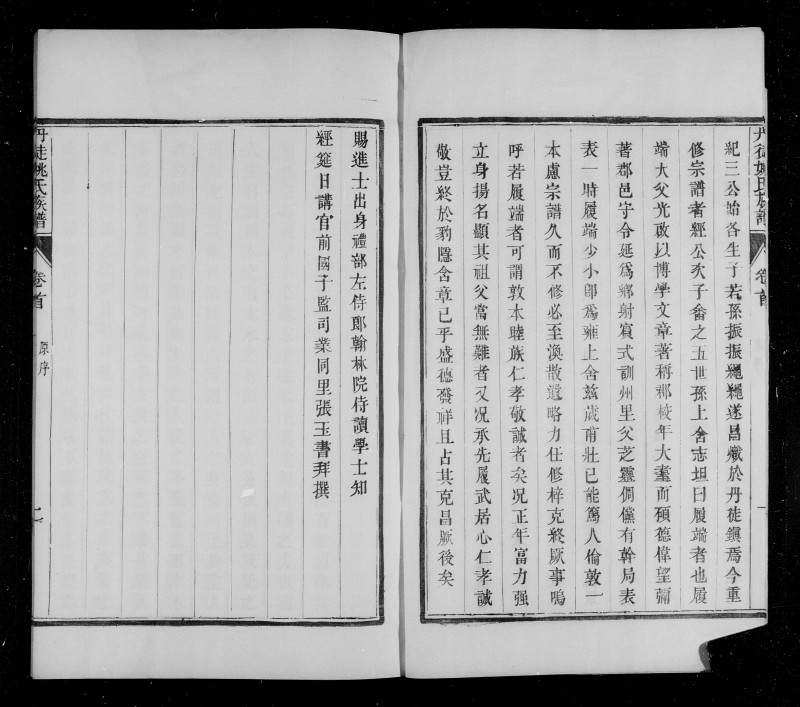 丹徒姚氏族譜
卷首
一
紀三公始各生子若孫振振繩繩遂昌熾於丹徒鎭焉今重
修宗譜者經公次子畬之五世孫上舍志坦曰履端者也履
端大父光啟以博學文章著稱郡校年大耋而碩德偉望彌
著郡邑守令延爲鄉射賓式訓州里父芝靈倜儻有幹局表
表一時履端少小卽爲雍上舍玆歲甫壯已能篤人倫敦一
本慮宗譜久而不修必至渙散遺略力任修梓克終厥事嗚
呼若履端者可謂敦本睦族仁孝敬誠者矣况正年富力强
立身揚名顯其祖父當無難者又况承先履武居心仁孝誠
敬豈終於豹隱含章已乎盛德發祥且占其克昌厥後矣
賜進士出身禮部左侍郎翰林院侍讀學士知
經筵日講官前國子監司業同里張玉書拜撰
丹徒姚氏族譜
卷首
原序
二